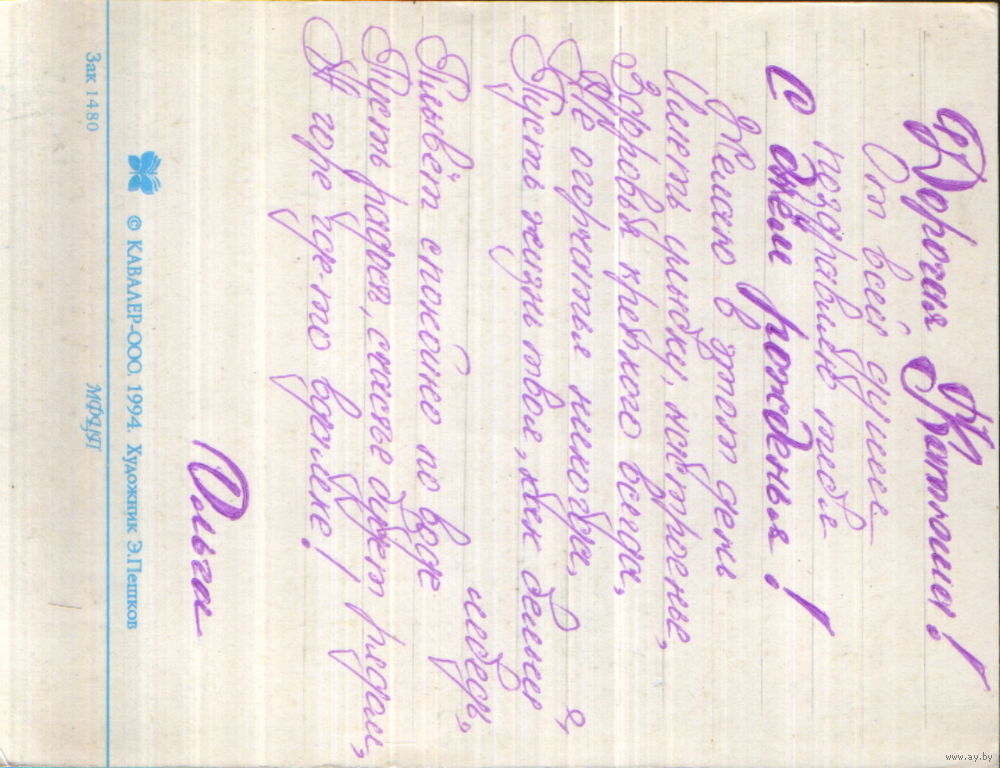 Дорогая Наташа!
От всей души
поздравляю тебя
С днём рожденья!
Желаю в этот день
Иметь улыбку, настроенье,
Здоровья крепкого всегда,
Не огорчаться никогда,
Пусть жизнь твоя, как белый
лебедь,
Плывёт спокойно по воде
Пусть радость, счастье будет рядом,
А горе где-то вдалеке!
Ольга
© КАВАЛЕР-ООО, 1994. Художник Э.Пешков
Зак 1480
МФЦП
www.ay.by